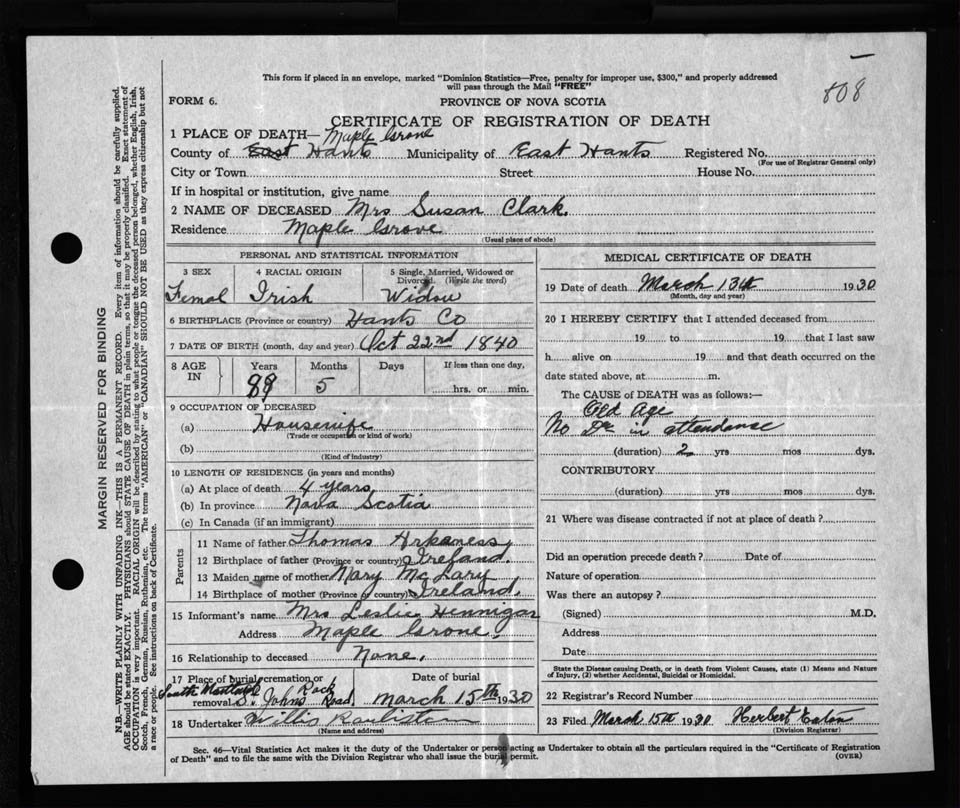 808
This form if placed in an envelope, marked "Dominion Statistics—Free, penalty for improper use, $300," and properly addressed
will pass through the Mail "FREE"
FORM 6.
PROVINCE OF NOVA SCOTIA
CERTIFICATE OF REGISTRATION OF DEATH
1 PLACE OF DEATH— Maple Grove
County of East Hants Municipality of East Hants Registered No.
(For use of Registrar General only)
City or Town Street House No.
If in hospital or institution, give name
2 NAME OF DECEASED Mrs Susan Clark.
Residence Maple Grove
(Usual place of abode)
PERSONAL AND STATISTICAL INFORMATION
3 SEX 4 RACIAL ORIGIN 5 Single, Married, Widowed or
Divorced. (Write the word)
Femal Irish Widow
6 BIRTHPLACE (Province or country) Hants Co
7 DATE OF BIRTH (month, day and year) Oct 22nd 1840
8 AGE
IN
Years Months Days If less than one day,
89 5 hrs. or min.
9 OCCUPATION OF DECEASED
(a) Housewife
(Trade or occupation or kind of work)
(b)
(Kind of industry)
10 LENGTH OF RESIDENCE (in years and months)
(a) At place of death 4 years
(b) In province Nova Scotia
(c) In Canada (if an immigrant)
Parents
11 Name of father Thomas Arkaness
12 Birthplace of father (Province or country) Ireland.
13 Maiden name of mother Mary McLary
14 Birthplace of mother (Province or country) Ireland.
15 Informant's name Mrs Leslie Hennigar
Address Maple Grove.
16 Relationship to deceased None.
17 Place of burial, cremation or Date of burial
removal South Maitland St Johns Road March 15th 1930
18 Undertaker Willis
(Name and address)
MEDICAL CERTIFICATE OF DEATH
19 Date of death March 13th 1930
(Month, day and year)
20 I HEREBY CERTIFY that I attended deceased from
19 to 19 that I last saw
h alive on 19 and that death occurred on the
date stated above, at m.
The CAUSE of DEATH was as follows:—
Old Age
No Dr in attendanse
(duration) 2 yrs mos dys.
CONTRIBUTORY
(duration) yrs mos dys.
21 Where was disease contracted if not at place of death?
Did an operation precede death? Date of
Nature of operation
Was there an autopsy?
(Signed) M.D.
Address
Date
State the Disease causing Death, or in death from Violent Causes, state (1) Means and Nature
of Injury, (2) whether Accidental, Suicidal or Homicidal.
22 Registrar's Record Number
23 Filed March 15th 1930 Herbert Eaton
(Division Registrar)
Sec. 46—Vital Statistics Act makes it the duty of the Undertaker or person acting as Undertaker to obtain all the particulars required in the "Certificate of Registration
of Death" and to file the same with the Division Registrar who shall issue the burial permit.
(OVER)
MARGIN RESERVED FOR BINDING
N.B.—WRITE PLAINLY WITH UNFADING INK—THIS IS A PERMANENT RECORD. Every item of information should be carefully supplied.
AGE should be stated EXACTLY. PHYSICIANS should STATE CAUSE OF DEATH in plain terms, so that it may be properly classified. Exact statement of
OCCUPATION is very important. RACIAL ORIGIN will be described by stating to what people or tongue the deceased person belonged, whether English, Irish,
Scotch, French, German, Russian, Ruthenian, etc. The terms "AMERICAN" or "CANADIAN" SHOULD NOT BE USED as they express citizenship but not
a race or people. See instructions on back of Certificate.